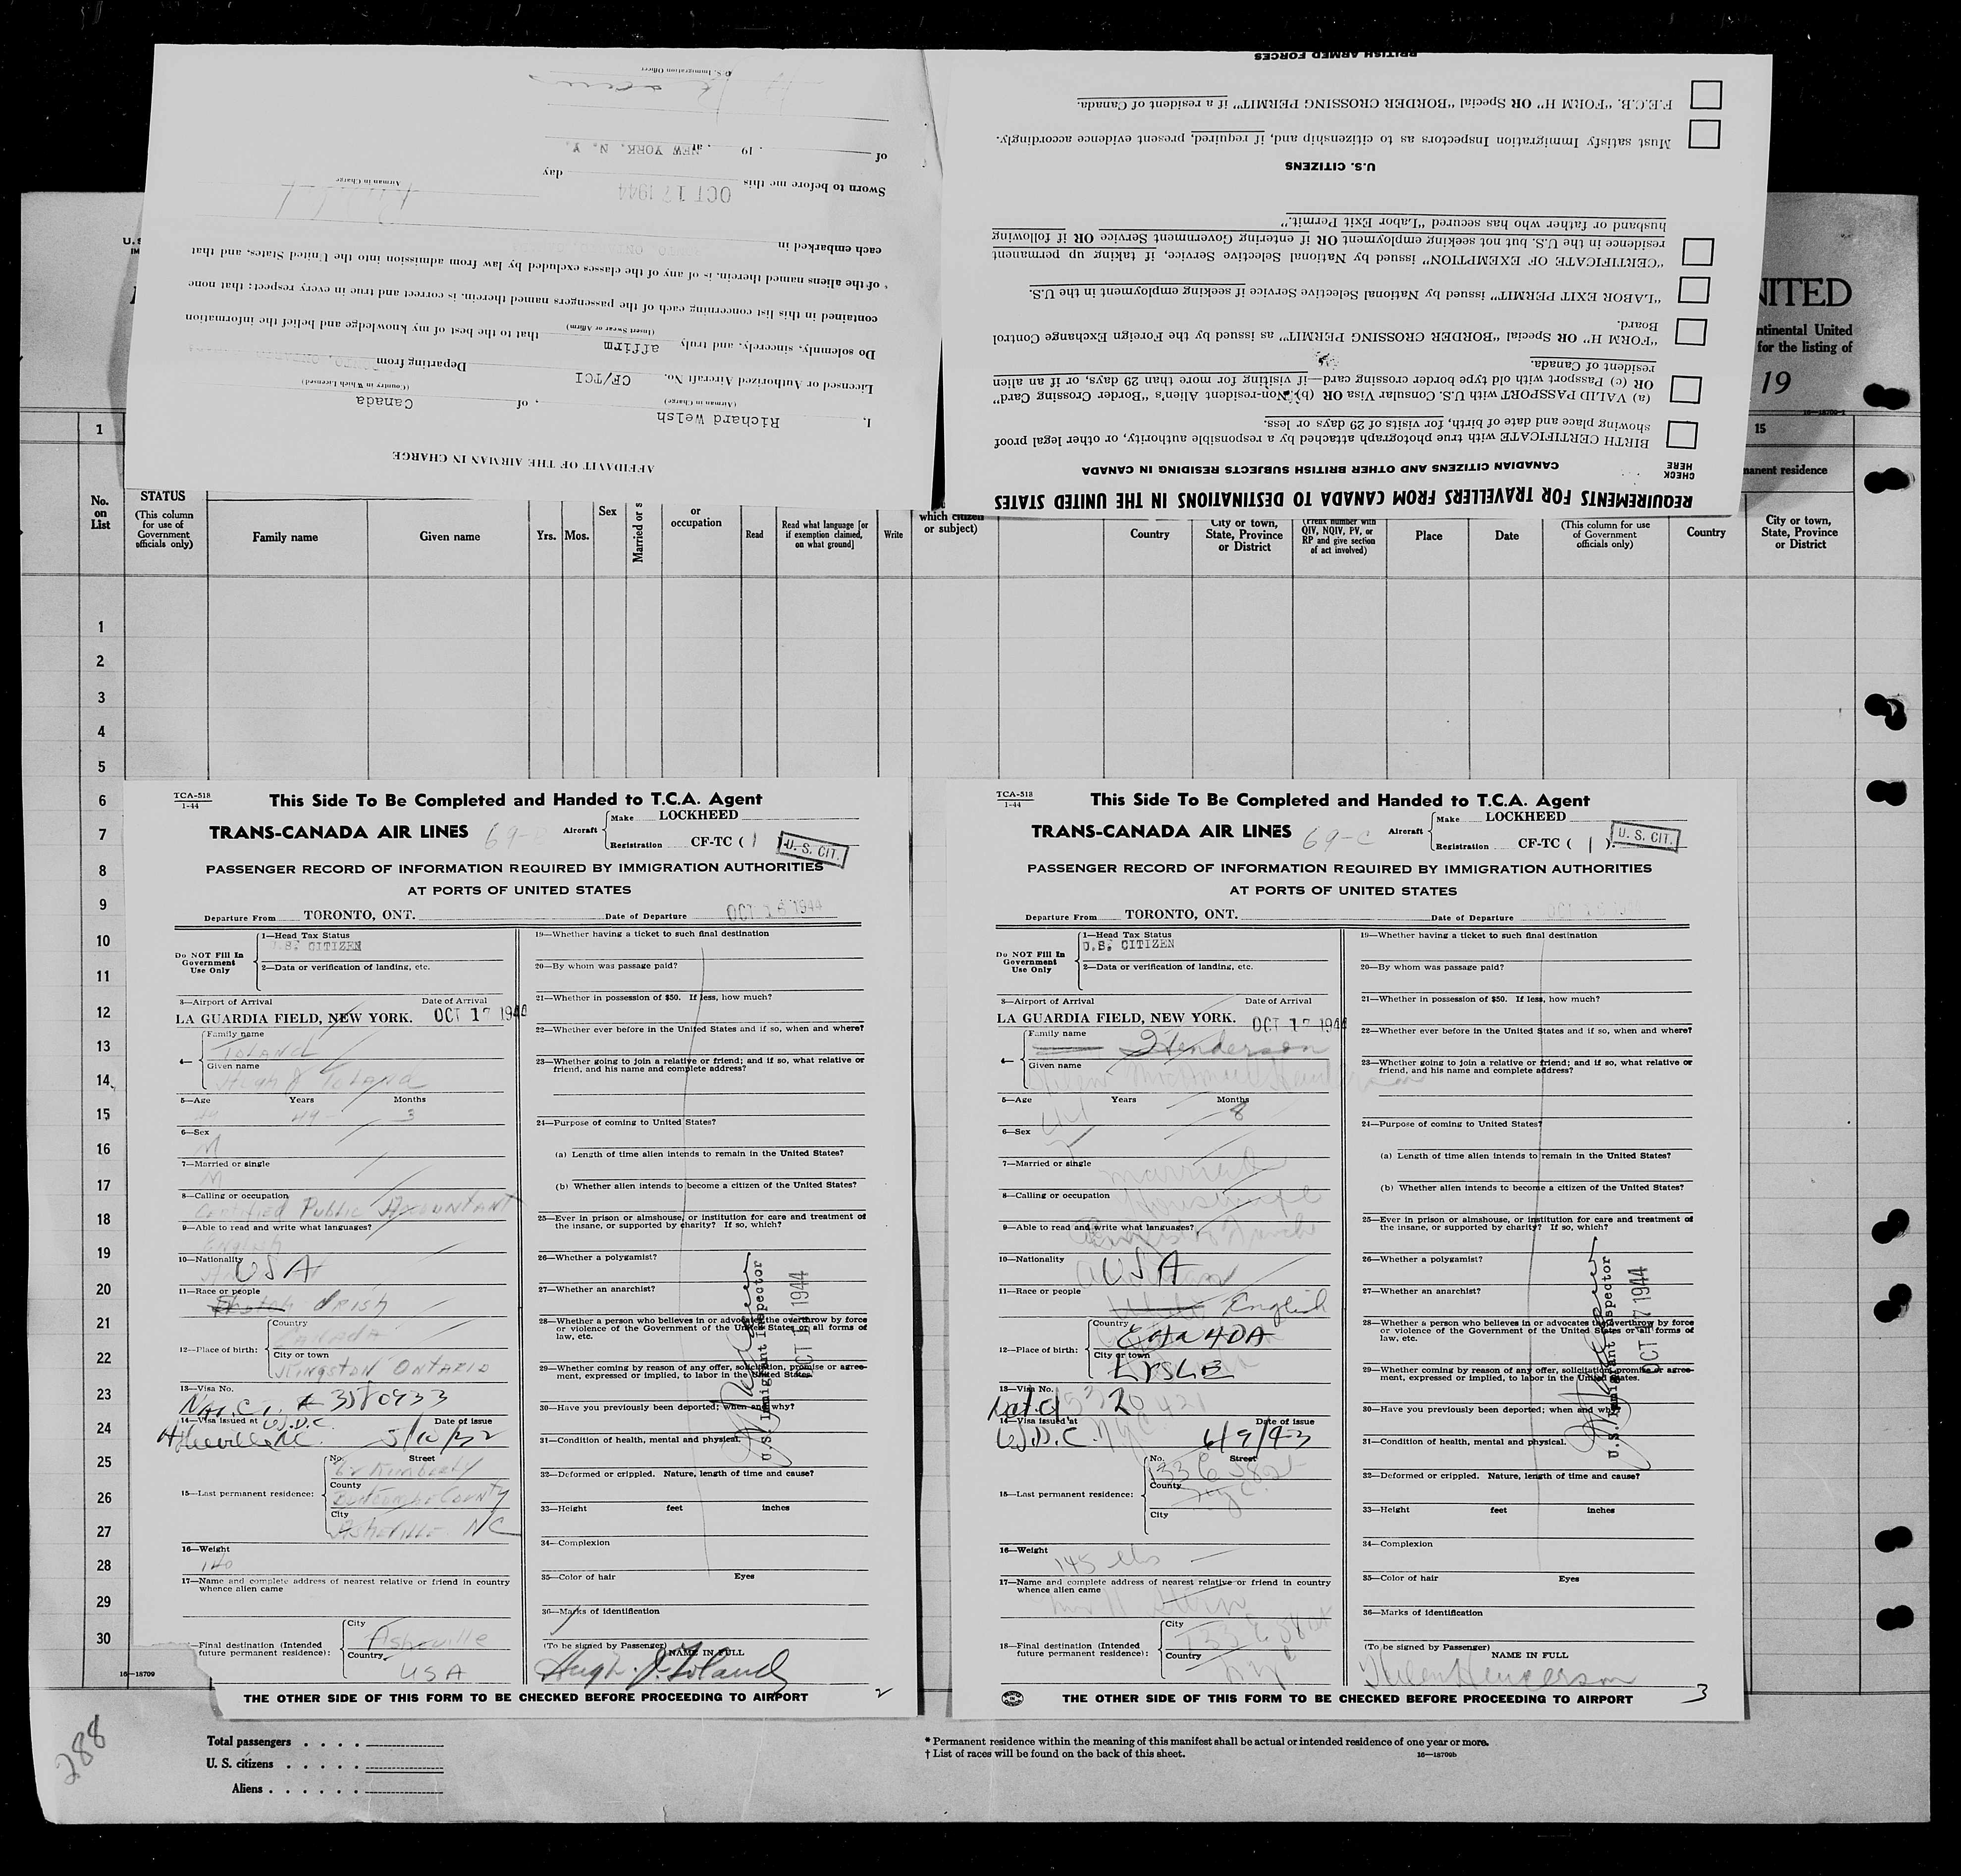 BRITISH ARMED FORCES
F.E.C.B. "FORM H" OR Special "BORDER CROSSING PERMIT" if a resident of Canada.
Must satisfy Immigration Inspectors as to citizenship and, if required, present evidence accordingly.
U.S. CITIZENS
husband or father who has secured "Labor Exit Permit."
residence in the U.S. but not seeking employment OR if entering Government Service OR if following
"CERTIFICATE OF EXEMPTION" issued by National Selective Service, if taking up permanent
"LABOR EXIT PERMIT" issued by National Selective Service if seeking employment in the U.S.
Board.
"FORM H" OR Special "BORDER CROSSING PERMIT" as issued by the Foreign Exchange Control
resident of Canada.
OR (c) Passport with old type border crossing card—if visiting for more than 29 days, or if an alien
(a) VALID PASSPORT with U.S. Consular Visa OR (b) Non-resident Alien's "Border Crossing Card"
showing place and date of birth, for visits of 29 days or less.
BIRTH CERTIFICATE with true photograph attached by a responsible authority, or other legal proof
CHECK HERE
CANADIAN CITIZENS AND OTHER BRITISH SUBJECTS RESIDING IN CANADA
REQUIREMENTS FOR TRAVELLERS FROM CANADA TO DESTINATIONS IN THE UNITED STATES
AFFIDAVIT OF THE AIRMAN IN CHARGE
I, Richard Welsh, of Canada
(Airman in Charge) (Country in Which Licensed)
Licensed or Authorized Aircraft No. CF/TCI Departing from
Do solemnly, sincerely, and truly affirm that to the best of my knowledge and belief the information
(Insert Swear or Affirm)
contained in this list concerning each of the passengers named therein, is correct and true in every respect; that none
of the aliens named therein, is of any of the classes excluded by law from admission into the United States, and that
each embarked in
Airman in Charge
Sworn to before me this OCT 17 1944 day
of , 19 , at NEW YORK, N. Y.
U.S. Immigration Officer
NITED
ntinental United
for the listing of
19
16—18709-1
1
15
manent residence
No. on List
STATUS
(This column for use of Government officials only)
Family name
Given name
Yrs.
Mos.
Sex
Married or s
or occupation
Read
Read what language [or if exemption claimed, on what ground]
Write
which citizen or subject)
Country
City or town, State, Province or District
(Prefix number with QIV, NQIV, PV, or RP and give section of act involved)
Place
Date
(This column for use of Government officials only)
Country
City or town, State, Province or District
1
2
3
4
5
6
7
8
9
10
11
12
13
14
15
16
17
18
19
20
21
22
23
24
25
26
27
28
29
30
16—18709
TCA-518
1-44
This Side To Be Completed and Handed to T.C.A. Agent
TRANS-CANADA AIR LINES 69-
Aircraft
Make LOCKHEED
Registration CF-TC ( 1
U. S. CIT.
PASSENGER RECORD OF INFORMATION REQUIRED BY IMMIGRATION AUTHORITIES
AT PORTS OF UNITED STATES
Departure From TORONTO, ONT. Date of Departure OCT 16 1944
Do NOT Fill In Government Use Only
1—Head Tax Status
U.S. CITIZEN
2—Data or verification of landing, etc.
3—Airport of Arrival Date of Arrival
LA GUARDIA FIELD, NEW YORK. OCT 17 1944
4—
Family name
Toland
Given name
Hugh J Toland
5—Age Years Months
49 3
6—Sex
M
7—Married or single
M
8—Calling or occupation
Certified Public Accountant
9—Able to read and write what languages?
English
10—Nationality
USA
11—Race or people
Irish
12—Place of birth:
Country
CANADA
City or town
Kingston Ontario
13—Visa No.
Nat. C. # 3580933
14—Visa issued at W.D.C. Date of issue
Asheville NC. 5/10/32
15—Last permanent residence:
No. Street
Kimberly
County
Buncombe County
City
Asheville NC
16—Weight
140
17—Name and complete address of nearest relative or friend in country whence alien came
—Final destination (Intended future permanent residence):
City
Asheville
Country
USA
19—Whether having a ticket to such final destination
20—By whom was passage paid?
21—Whether in possession of $50. If less, how much?
22—Whether ever before in the United States and if so, when and where?
23—Whether going to join a relative or friend; and if so, what relative or friend, and his name and complete address?
24—Purpose of coming to United States?
(a) Length of time alien intends to remain in the United States?
(b) Whether alien intends to become a citizen of the United States?
25—Ever in prison or almshouse, or institution for care and treatment of the insane, or supported by charity? If so, which?
26—Whether a polygamist?
27—Whether an anarchist?
28—Whether a person who believes in or advocates the overthrow by force or violence of the Government of the United States or all forms of law, etc.
29—Whether coming by reason of any offer, solicitation, promise or agreement, expressed or implied, to labor in the United States.
30—Have you previously been deported; when and why?
31—Condition of health, mental and physical.
32—Deformed or crippled. Nature, length of time and cause?
33—Height feet inches
34—Complexion
35—Color of hair Eyes
36—Marks of identification
(To be signed by Passenger) NAME IN FULL
Hugh J. Toland
U.S. Immigrant Inspector
OCT 17 1944
THE OTHER SIDE OF THIS FORM TO BE CHECKED BEFORE PROCEEDING TO AIRPORT
2
TCA-518
1-44
This Side To Be Completed and Handed to T.C.A. Agent
TRANS-CANADA AIR LINES 69-C
Aircraft
Make LOCKHEED
Registration CF-TC ( 1 ).
U. S. CIT.
PASSENGER RECORD OF INFORMATION REQUIRED BY IMMIGRATION AUTHORITIES
AT PORTS OF UNITED STATES
Departure From TORONTO, ONT. Date of Departure OCT 16 1944
Do NOT Fill In Government Use Only
1—Head Tax Status
U.S. CITIZEN
2—Data or verification of landing, etc.
3—Airport of Arrival Date of Arrival
LA GUARDIA FIELD, NEW YORK. OCT 17 1944
4—
Family name
Henderson
Given name
Helene
5—Age Years Months
8
6—Sex
7—Married or single
married
8—Calling or occupation
Housewife
9—Able to read and write what languages?
French
10—Nationality
USA
11—Race or people
English
12—Place of birth:
Country
City or town
13—Visa No.
14—Visa issued at Date of issue
W.D.C. NYC 6/9/43
15—Last permanent residence:
No. Street
133 E 58 St
County
NYC
City
16—Weight
145 lbs
17—Name and complete address of nearest relative or friend in country whence alien came
18—Final destination (Intended future permanent residence):
City
133 E 58 St
Country
NYC
19—Whether having a ticket to such final destination
20—By whom was passage paid?
21—Whether in possession of $50. If less, how much?
22—Whether ever before in the United States and if so, when and where?
23—Whether going to join a relative or friend; and if so, what relative or friend, and his name and complete address?
24—Purpose of coming to United States?
(a) Length of time alien intends to remain in the United States?
(b) Whether alien intends to become a citizen of the United States?
25—Ever in prison or almshouse, or institution for care and treatment of the insane, or supported by charity? If so, which?
26—Whether a polygamist?
27—Whether an anarchist?
28—Whether a person who believes in or advocates the overthrow by force or violence of the Government of the United States or all forms of law, etc.
29—Whether coming by reason of any offer, solicitation, promise or agreement, expressed or implied, to labor in the United States.
30—Have you previously been deported; when and why?
31—Condition of health, mental and physical.
32—Deformed or crippled. Nature, length of time and cause?
33—Height feet inches
34—Complexion
35—Color of hair Eyes
36—Marks of identification
(To be signed by Passenger)
NAME IN FULL
Helen Henderson
U.S. Immigrant Inspector
OCT 17 1944
THE OTHER SIDE OF THIS FORM TO BE CHECKED BEFORE PROCEEDING TO AIRPORT
3
288
Total passengers
U. S. citizens
Aliens
* Permanent residence within the meaning of this manifest shall be actual or intended residence of one year or more.
† List of races will be found on the back of this sheet. 16—18709b